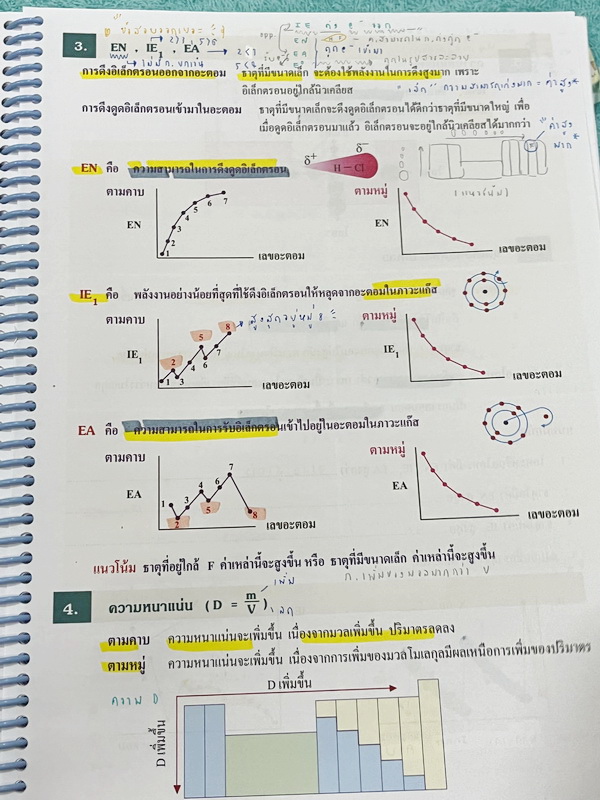 3.
EN , IE₁ , EA
การดึงอิเล็กตรอนออกจากอะตอม ธาตุที่มีขนาดเล็ก จะต้องใช้พลังงานในการดึงสูงมาก เพราะ
อิเล็กตรอนอยู่ใกล้นิวเคลียส
การดึงดูดอิเล็กตรอนเข้ามาในอะตอม ธาตุที่มีขนาดเล็กจะดึงดูดอิเล็กตรอนได้ดีกว่าธาตุที่มีขนาดใหญ่ เพื่อ
เมื่อดูดอิเล็กตรอนมาแล้ว อิเล็กตรอนจะอยู่ใกล้นิวเคลียสได้มากกว่า
EN คือ ความสามารถในการดึงดูดอิเล็กตรอน
δ+ δ-
H – Cl
ตามคาบ
EN
1 2 3 4 5 6 7
เลขอะตอม
ตามหมู่
EN
เลขอะตอม
IE₁ คือ พลังงานอย่างน้อยที่สุดที่ใช้ดึงอิเล็กตรอนให้หลุดจากอะตอมในภาวะแก๊ส
ตามคาบ
IE₁
1 2 3 4 5 6 7 8
สูงสุดอยู่หมู่ 8
เลขอะตอม
ตามหมู่
IE₁
เลขอะตอม
EA คือ ความสามารถในการรับอิเล็กตรอนเข้าไปอยู่ในอะตอมในภาวะแก๊ส
ตามคาบ
EA
1 2 3 4 5 6 7 8
เลขอะตอม
ตามหมู่
EA
เลขอะตอม
แนวโน้ม ธาตุที่อยู่ใกล้ F ค่าเหล่านี้จะสูงขึ้น หรือ ธาตุที่มีขนาดเล็ก ค่าเหล่านี้จะสูงขึ้น
เพิ่ม
4.
ความหนาแน่น (D = m/V)
ลด
ตามคาบ ความหนาแน่นจะเพิ่มขึ้น เนื่องจากมวลเพิ่มขึ้น ปริมาตรลดลง
ตามหมู่ ความหนาแน่นจะเพิ่มขึ้น เนื่องจากการเพิ่มของมวลโมเลกุลมีผลเหนือการเพิ่มของปริมาตร
D เพิ่มขึ้น
D เพิ่มขึ้น